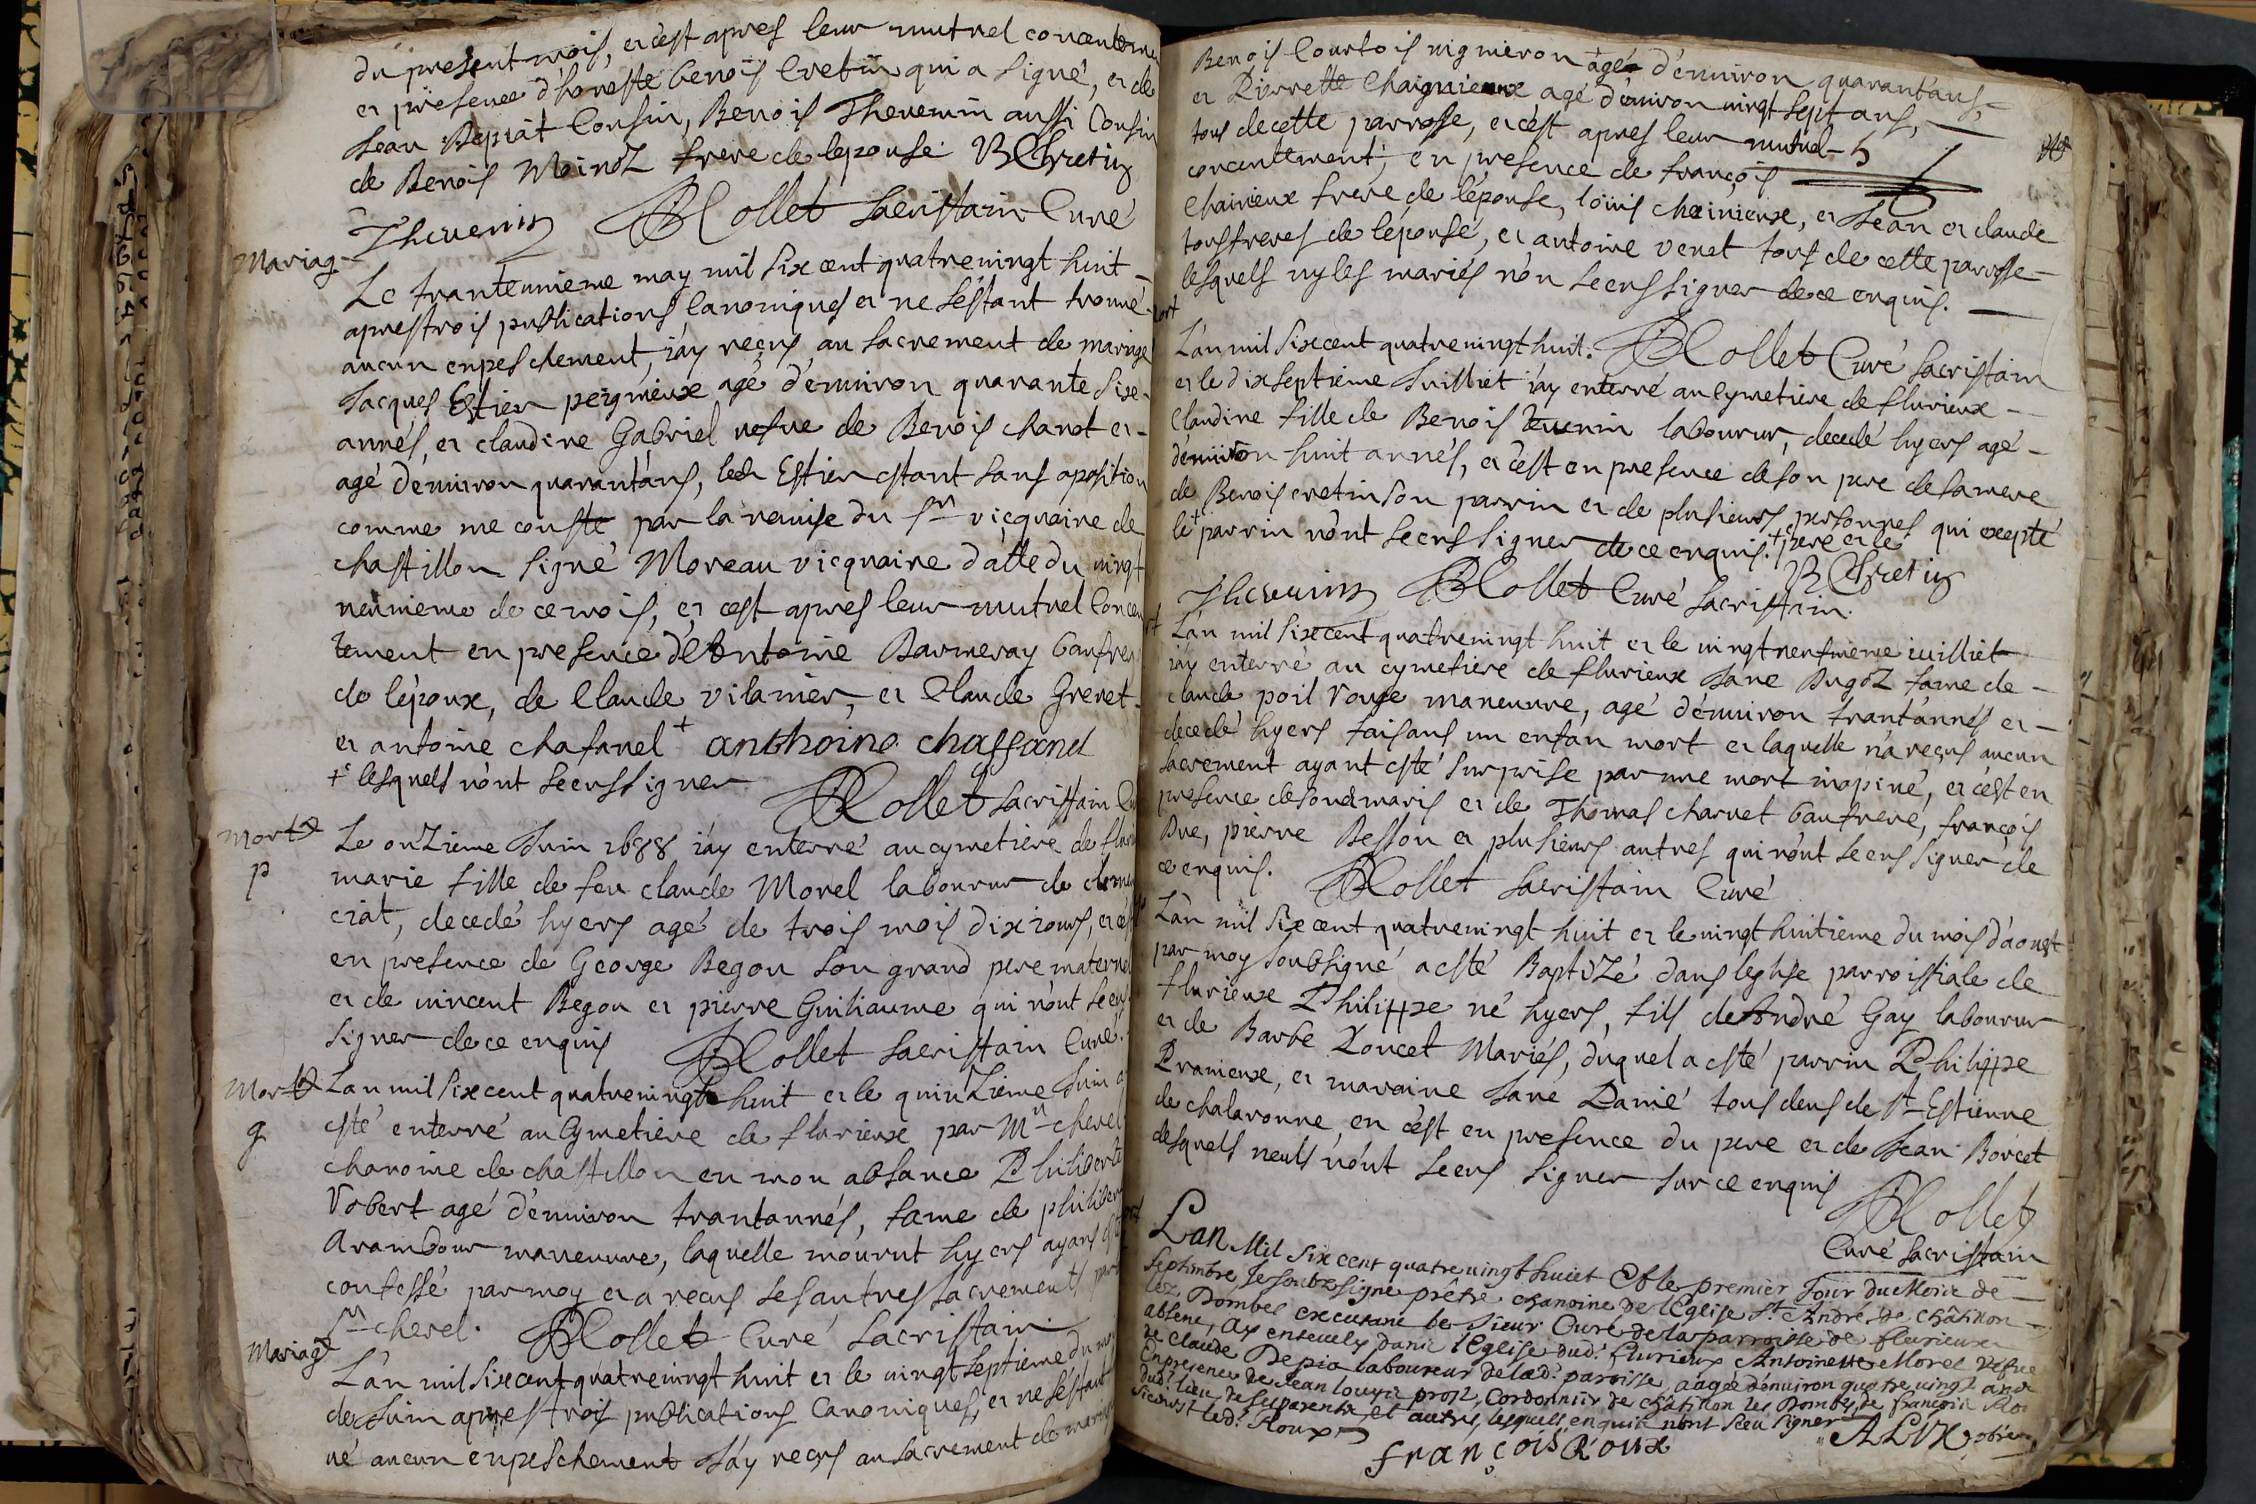 du present mois, et cest apres leur mutuel concente
et presence d'honeste benois Cretin qui a signé, et de
Jean Cousin, Benois Thevenin aussi Cousin
de Benois Moinoz frere de lepouse B Chretin
Thevenin Rollet Sacristain Curé
Mariag
Le tranteunieme may mil six cent quatrevingt huit
apres trois publications Canoniques et ne sestant trouvé
aucun enpeschement, j'ay reçus au sacrement de mariage
Jacques Estier peigneux agé d'environ quarante six
annés, et claudine Gabriel vefve de Benois chanot et
agé d'environ quarant'ans, led Estier estant sans aposition
comme me conste par la remise du sr vicquaire de
chastillon signé Moreau vicquaire datte du vingt
neunieme de ce mois, et cest apres leur mutuel Concen
tement en presence d'Antoine Barmeray baufrere
de lépoux, de Claude vilanier, et Claude Grenet
et antoine chafanel + anthoine chaffanel
+ lesquels n'ont sceus signer
Rollet sacristain
Mort
p
Le onzieme Juin 1688 j'ay enterré au cymetiere de
marie fille de feu claude Morel laboureur de
ciat, decedé hyers agé de trois mois dix jours, et
en presence de George Begon son grand pere maternel
et de vincent Begon et pierre Guiliaume qui n'ont sceus
signer de ce enquis Rollet Sacristain Curé
Mort
g
Lan mil six cent quatrevingt huit et le quinzieme Juin a
esté enterré au Cymetiere de flurieux par Mr chevel
chanoine de chastillon en mon absance Philiberte
Vobert agé d'environ trantannés, fame de philibert
Arambour maneuvre, laquelle mourut hyers ayans
confessé par moy et a recus ses autres sacrements par
sr chevel. Rollet Curé Sacristain
Mariag
L'an mil six cent quatrevingt huit et le vingt septieme du
de Juin apres trois publications Canoniques, et ne sestant
vé aucun enpeschement J'ay reçus au sacrement de mariage
Benois Courtois vigneron agé d'environ quarant'ans,
et Pierrette Chaignieux agé d'environ vingt sept ans,
tous de cette parrosse, et cest apres leur mutuel
concentement, en presence de françois
Chainieux frere de l'épouse, loüis chainieux, et Jean et claude
tous freres de l'épouse, et antoine venet tous de cette parrosse
lesquels ny les mariés n'on sceus signer de ce enquis.
L'an mil six cent quatrevingt huit. Rollet Curé Sacristain
et le dix septieme Juilliet j'ay enterré au Cymetiere de flurieux
Claudine fille de Benois laboureur, decedé hyers agé
d'environ huit annés, et c'est en presence de son pere de sa mere
de Benois cretin son parrin et de plusieurs personnes qui excepté
le + parrin n'ont sceus signer de ce enquis. + pere et le
B Chretin
Thevenin Rollet Curé Sacristain.
L'an mil six cent quatrevingt huit et le vingt neufvieme iuilliet
j'ay enterré au cymetiere de flurieux Jane Bugoz fame de
claude poil Rouge maneuvre, agé d'environ trant'annés et
decedé hyers faisans un enfan mort et laquelle n'a reçus aucun
sacrement ayant esté surprise par une mort inopiné, et c'est en
presence de son maris et de Thomas charvet baufrere, françois
Bre, pierre Besson et plusieurs autres qui n'ont sceus signer de
ce enquis. Rollet Sacristain Curé
L'an mil six cent quatrevingt huit et le vingt huitieme du mois d'aoust
par moy soubsigné a esté Baptizé dans leglise parroissiale de
flurieux Philippe né hyers, fils de André Gay laboureur
et de Barbe Poncet Mariés, duquel a esté parrin Philippe
Pranieux, et maraine Jane Danié tous deus de st Estienne
de chalaronne, en c'est en presence du pere et de Jean Borcet
desquels neuls n'ont sceus signer sur ce enquis
Rollet
Curé Sacristain
L'an Mil six cent quatrevingt huict Et le premier Jour du Mois de
Septembre Je soubzsigné prêtre chanoine de l'Eglise St. André de Châtillon
lez Dombes excusant le Sieur Curé de la parroisse de flurieux
absent, ay ensevely dans l'Eglise dud. flurieux Antoinette Morel vefve
de Claude Depia laboureur de lad. paroisse, aagée d'environ quatre vingt ans
En presence de Jean louys prost, Cordonnier de châtillon les Dombes, de françois
dud. lieu, de ses parents et autres, lesquels enquis n'ont sceu signer
led. Roux
françois Roux
ALIX